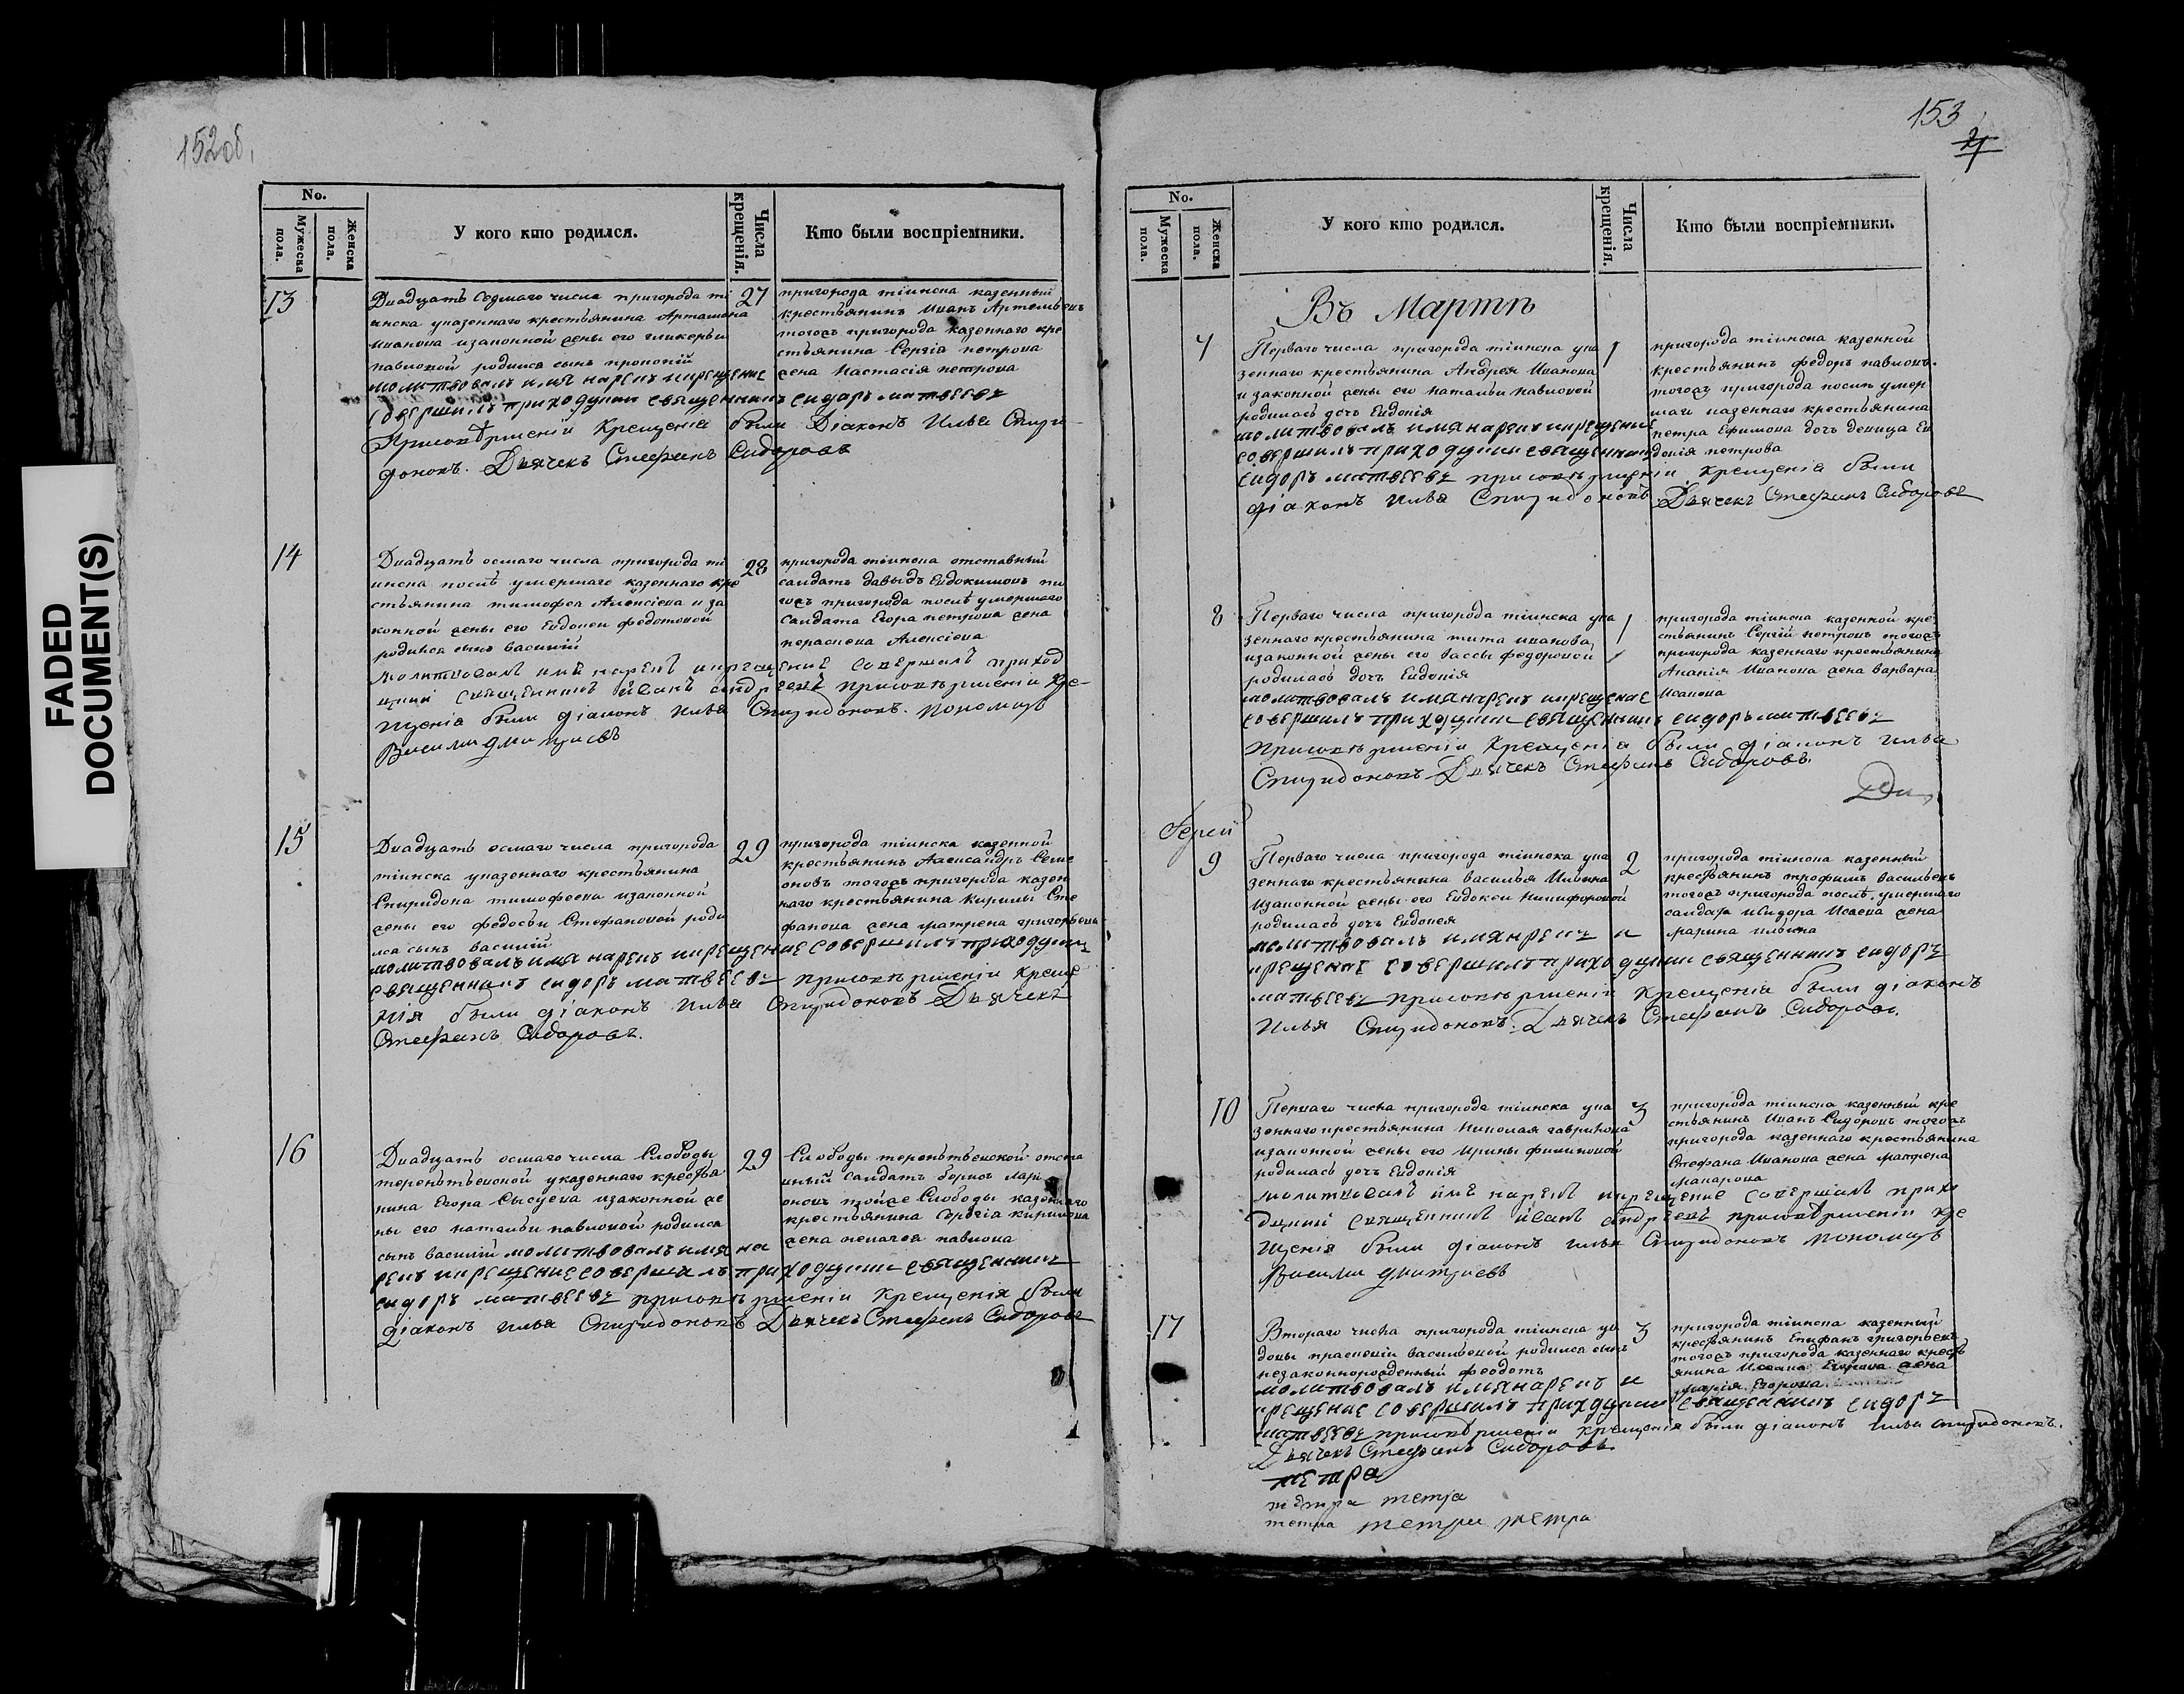 152об.
No.
Мужеска пола.
Женска пола.
У кого кто родился.
Числа крещенія.
Кто были воспріемники.
13
Двадцать седмаго числа пригорода ті
инска указеннаго крестьянина Артамона
Иванова изаконной жены его гликерьи
павловой родился сынъ прокопій
молитвовалъ имя нарекъ икрещение
совершилъ приходцкии священникъ сидоръ матвеевъ
Присовѣршеніи Крещенія были Діаконъ Илья Спири
доновъ. Дьячекъ Стефанъ Сидоровъ
27
пригорода тіинска казенный
крестьянинъ Иванъ Артемьевъ
тогожъ пригорода казеннаго кре
стьянина Сергія петрова
жена Настасія петрова
14
Двадцать осмаго числа пригорода ті
инска послѣ умершаго казеннаго кре
стьянина тимофея Алексіева и за
конной жены его Евдокеи федотовой
родился сынъ василій
молитвовалъ имя нарекъ икрещение совершилъ приход
цкий священникъ иванъ андреевъ присовѣршеніи кре-
щенія были діаконъ Илья Спиридоновъ. пономарь
Василии дмитриевъ
28
пригорода тіинска отставный
салдатъ давыдъ Евдокимовъ то
гожъ пригорода послѣ умершаго
салдата Егора петрова жена
пераскева Алексіева
15
Двадцать осмаго числа пригорода
тіинска указеннаго крестьянина
Спиридона тимофеева изаконной
жены его федосьи Стефановой роди
лся сынъ василій
молитвовалъ имя нарекъ икрещение совершилъ приходцкии
священникъ сидоръ матвеевъ присовѣршеніи креще
нія были діаконъ Илья Спиридоновъ Дьячекъ
Стефанъ Сидоровъ.
29
пригорода тіинска казенной
крестьянинъ Александръ Семе
оновъ тогожъ пригорода казен
наго крестьянина Кирилы Сте
фанова жена матрена григорьева
16
Двадцать осмаго числа Слободы
терентьевской указеннаго крестья
нина Егора Сысуева изаконной же
ны его натальи павловой родился
сынъ василій молитвовалъ имя на
рекъ икрещение совершилъ приходцкии священникъ
сидоръ матвеевъ присовѣршеніи Крещенія были
діаконъ Илья Спиридоновъ Дьячекъ Стефанъ Сидоровъ
29
Слободы терентьевской отста
вный салдатъ борисъ Лари
оновъ тойже Слободы казеннаго
крестьянина Сергія кирилова
жена пелагея павлова
153
No.
Мужеска пола.
Женска пола.
У кого кто родился.
Числа крещенія.
Кто были воспріемники.
Въ Мартѣ
7
Перваго числа пригорода тіинска ука
зеннаго крестьянина Андрея Иванова
и законной жены его натальи павловой
родилась дочь Евдокія
молитвовалъ имя нарекъ икрещение
совершилъ приходцкии священникъ
сидоръ матвеевъ присовѣршеніи крещенія были
діаконъ Илья Спиридоновъ Дьячекъ Стефанъ Сидоровъ
1
пригорода тіинска казенной
крестьянинъ федоръ павловъ.
тогожъ пригорода послѣ умер
шаго казеннаго крестьянина
петра Ефимова дочь девица Ев
докія петрова
8
Перваго числа пригорода тіинска ука
зеннаго крестьянина тита иванова
изаконной жены его вассы федоровой
родилась дочь Евдокія
молитвовалъ имя нарекъ икрещение
совершилъ приходцкии священникъ сидоръ матвеевъ
присовѣршеніи Крещенія были діаконъ илья
Спиридоновъ Дьячекъ Стефанъ Сидоровъ.
1
пригорода тіинска казенной кре
стьянинъ Сергій петровъ тогожъ
пригорода казеннаго крестьянина
Ананія Иванова жена варвара
Иванова
Іерей
9
Перваго числа пригорода тіинска ука
зеннаго крестьянина василья Ильина
Изаконной жены его Евдокеи Никифоровой
родилась дочь Евдокея
молитвовалъ имя нрекъ и
крещение совершилъ приходцкии священникъ сидоръ
матвеевъ присовѣршеніи Крещенія были діаконъ
Илья Спиридоновъ. Дьячекъ Стефанъ Сидоровъ.
2
пригорода тіинска казенный
крестьянинъ трофимъ васильевъ
тогожъ пригорода послѣ умершаго
салдата исидора Исаева жена
марина ильина
10
Перваго числа пригорода тіинска ука
зеннаго крестьянина Николая гаврилова
изаконной жены его Ирины филиповой
родилась дочь Евдокія
молитвовалъ имя нарекъ икрещение совершилъ прихо
дцкий священникъ иванъ андреевъ присовѣршеніи кре
щенія были діаконъ илья Спиридоновъ пономарь
Василии дмитриевъ
3
пригорода тіинска казенный кре
стьянинъ Иванъ Сидоровъ тогожъ
пригорода казеннаго крестьянина
Стефана Иванова жена матрена
макарова
17
Втораго числа пригорода тіинска ув
довы праскевіи васильевой родился сынъ
незаконнорожденный феодотъ
молитвовалъ имя нарекъ и
крещение совершилъ прихдцкии священникъ сидоръ
матвеевъ присовѣршеніи крещенія были діаконъ Илья спиридоновъ.
Дьячекъ Стефанъ Сидоровъ
3
пригорода тіинска казенный
крестьянинъ Епифанъ григорьевъ
тогожъ пригорода казеннаго кресть
янина Ивана Егорова жена
марія Егорова
метра
метра метра
метра метри метра
FADED
DOCUMENT(S)